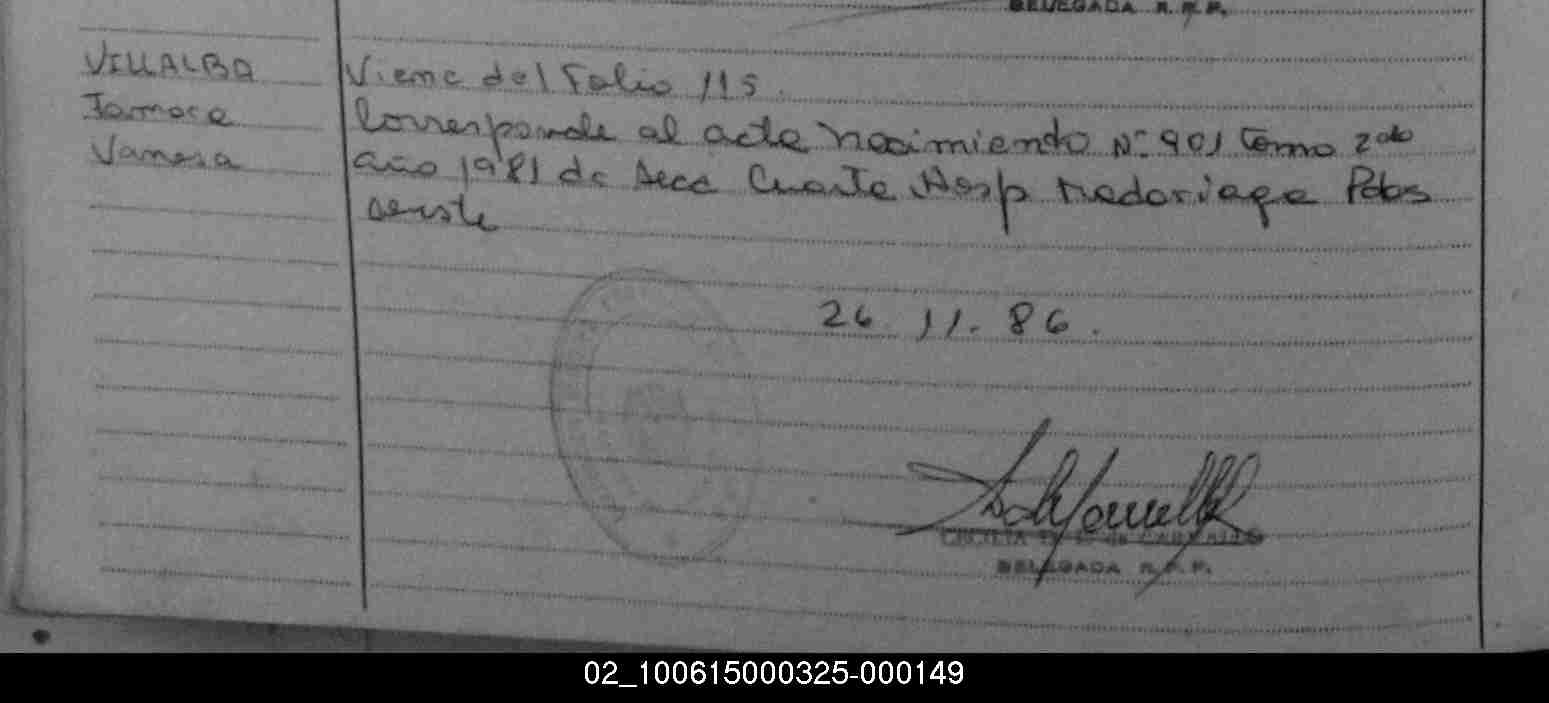 DELEGADA R.P.P.
VILLALBA
Jamoca
Vanesa
Viene del Folio 115.
Corresponde al acta Nacimiento Nº 901 tomo 2do
año 1981 de Secc Cuarta Hosp Madariaga Pdas
26 11. 86.
DELEGADA R.P.P.
02_100615000325-000149